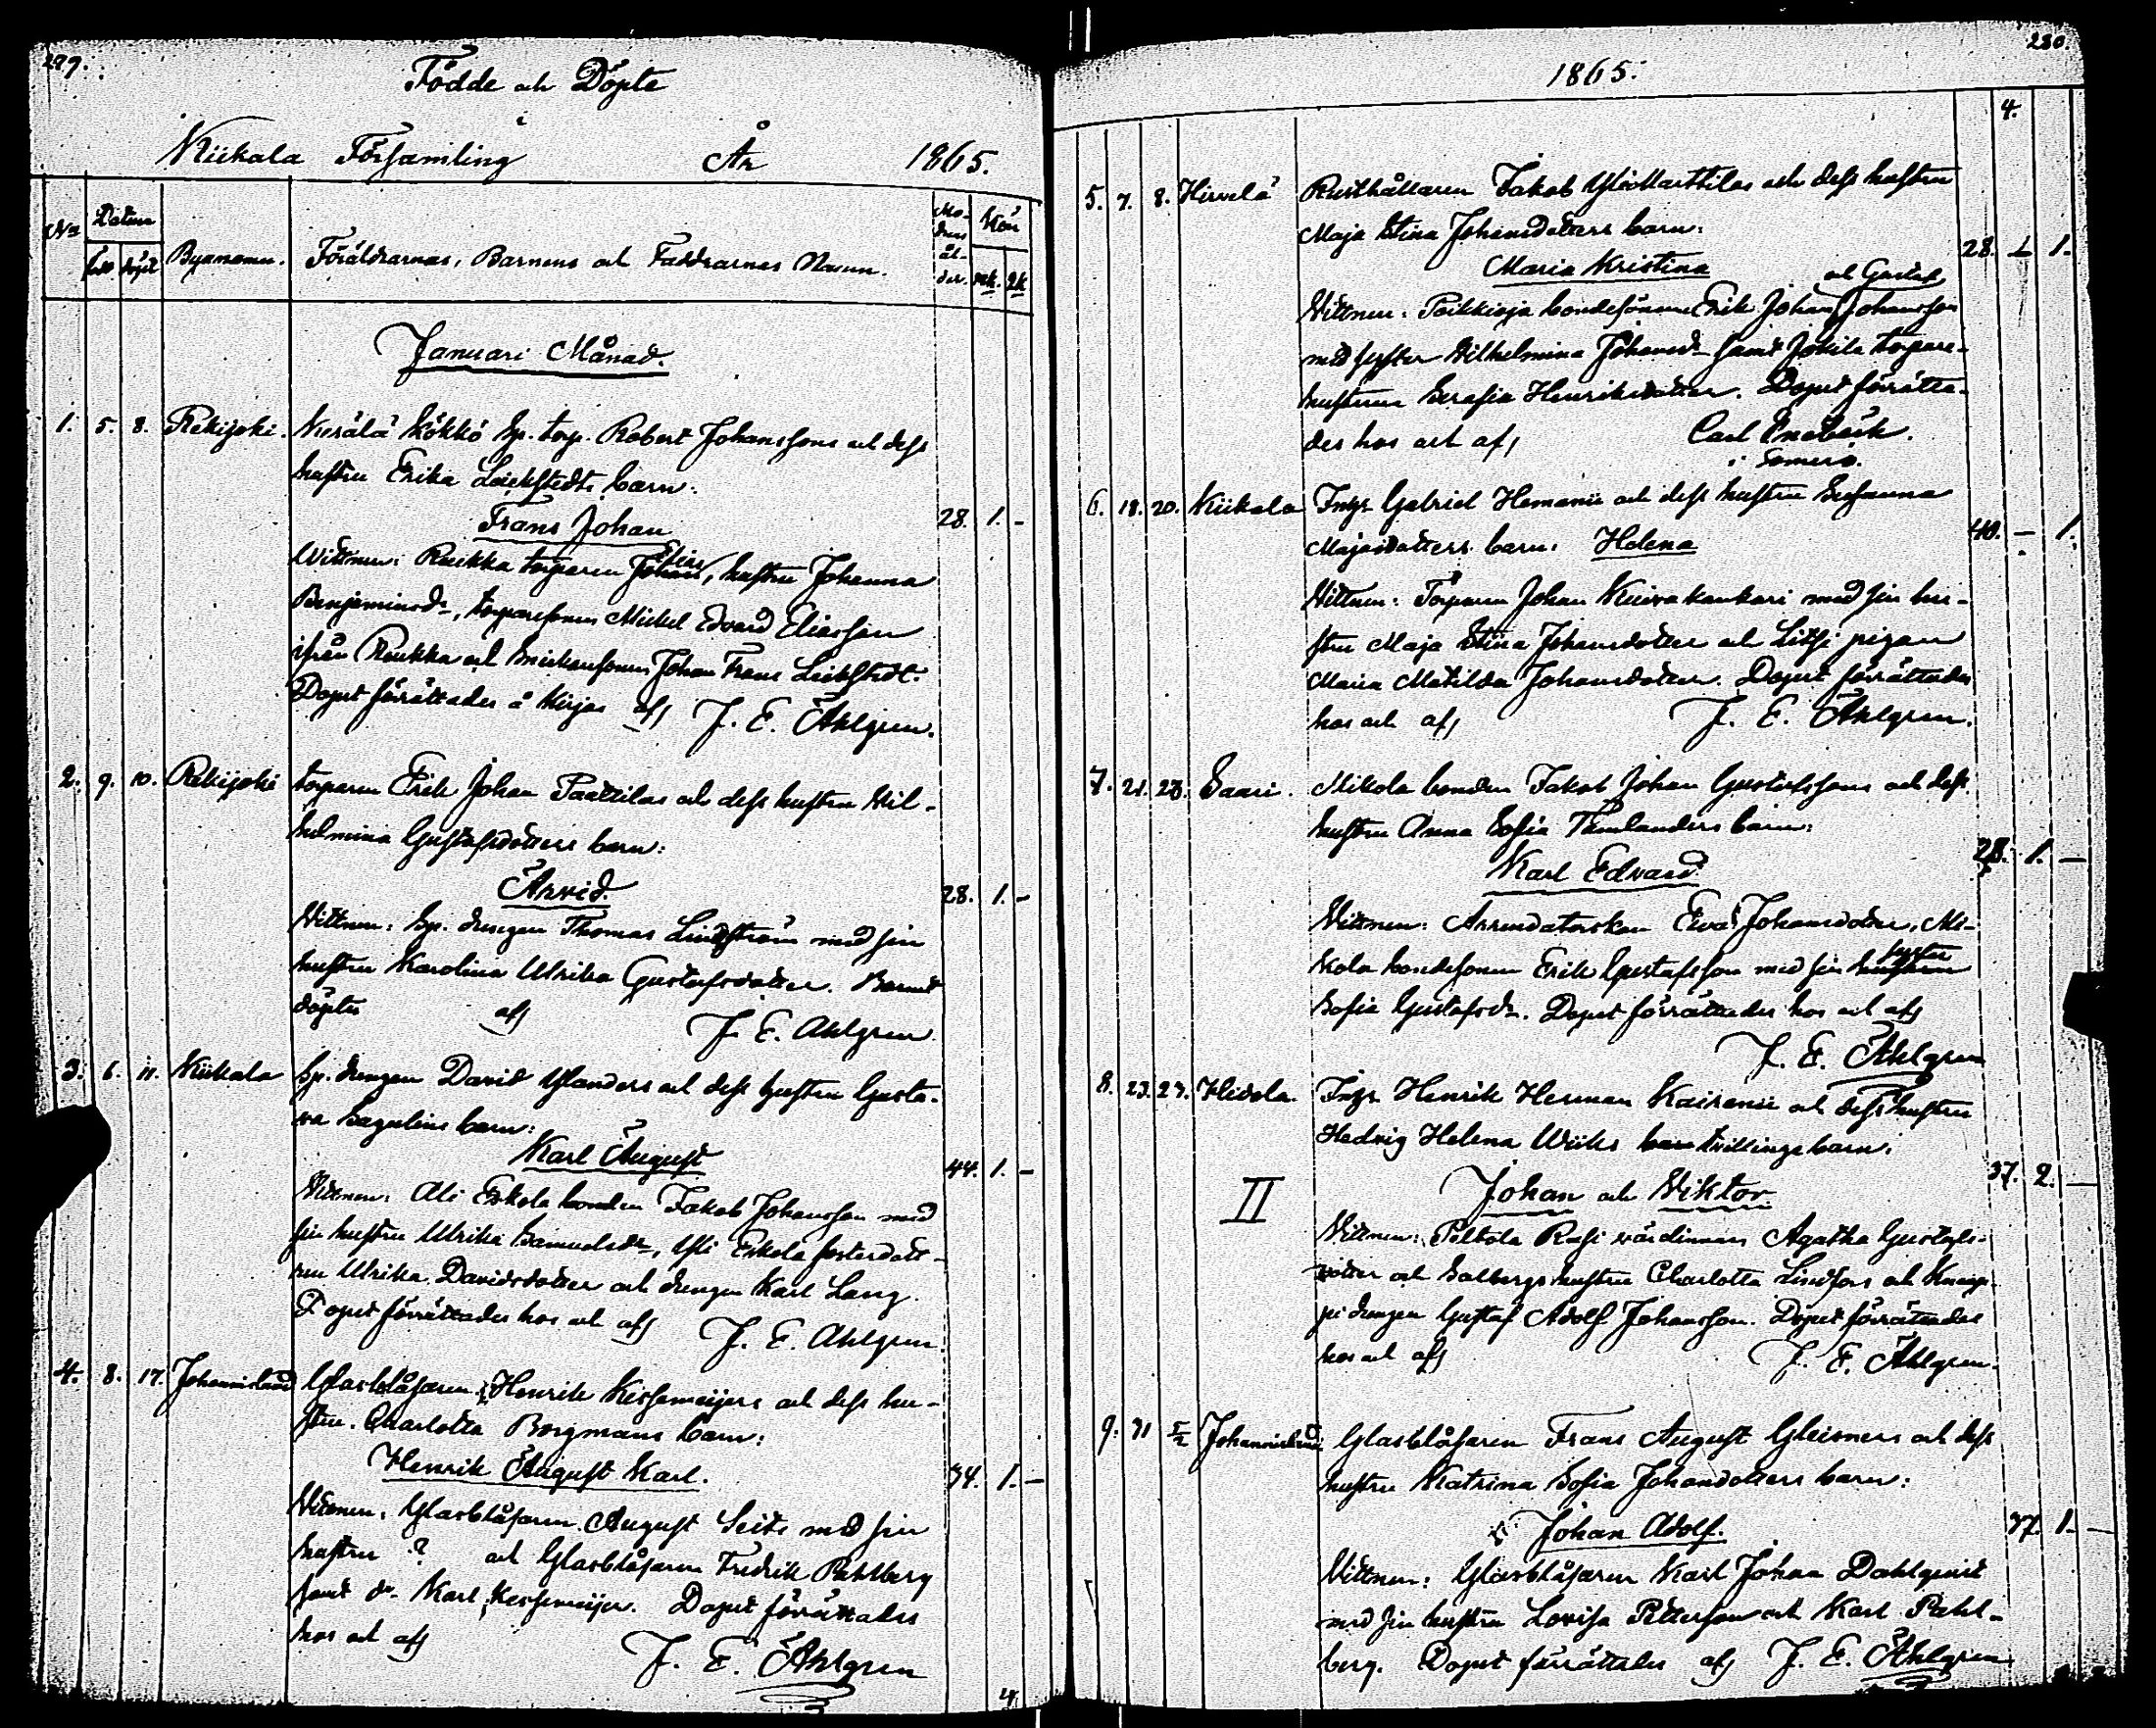 279.
Födde och Döpte
i
Kiikala Församling År 1865.
No Datum Byanamn. Föräldrarnas, Barnens och Faddrarnas Namn. Mo-drens ål-der. Kön
född döpt mk. qk
Januari Månad.
1. 5. 8. Rekijoki. Kurälä Kökkö Sp. torp. Robert Johanssons och dess
hustru Erika Leickstedts barn:
Frans Johan 28. 1. -
Vittnen: Ruikka torparen Johan Elias, hustru Johanna
Benjaminsdr, torparesonen Mickel Edvard Eliasson
ifrån Ruikka och Johan Frans Leikstedt.
Dopet förrättades å Kirjas af J. E. Ahlgren.
2. 9. 10. Rekijoki torparen Erik Johan Paattilas och dess hustru Wil-
helmina Gustafsdotters barn:
Arvid. 28. 1. -
Vittnen: Sp. drengen Thomas Lindström med sin
hustru Karolina Ulrika Gustafsdotter. Barnet
döptes af J. E. Ahlgren
3. 6. 11. Kiikala Sp. drengen David Ylanders och dess hustru Gusta-
va Sagulins barn:
Karl August 44. 1. -
Vittnen: Ali Eskola bonden Jakob Johansson med
sin hustru Ulrika Samuelsdr, Yli Eskola fosterdott-
ren Ulrika Davidsdotter och drengen Karl Lang.
Dopet förrättades hos och af J. E. Ahlgren.
4. 8. 17. Johannislund Glasblåsaren Henrik Kessemeijers och dess hu-
stru Charlotta Borgmans barn:
Henrik August Karl. 34. 1. -
Vittnen: Glasblåsaren August Seits med sin
hustru ? och Glasblåsaren Fredrik Pahlberg
samt do Karl Kessemeijer. Dopet förrättades
hos och af
J. E. Ahlgren
4
280.
1865.
4.
5. 7. 8. Hirvelä Rusthållaren Jakob YliMarttilas och dess hustru
Maja Stina Johansdotters barn:
Maria Kristina 28. - 1.
och Gustaf
Vittnen: Poikkioja bondesönerne Erik Johan Johansson
med syster Wilhelmina Johansdr samt Jokila torpare-
hustrun Serafia Henriksdotter. Dopet förrätta-
des hos och af Carl Enebäck.
i Somero.
6. 18. 20. Kiikala Inhys Gabriel Hemanii och dess hustru Susanna
Majasdotters barn: Helena 40. - 1.
Vittnen: Torparen Johan Kuivakankari med sin hu-
stru Maja Stina Johansdotter och Litsi pigan
Maria Matilda Johansdotter. Dopet förrättades
hos och af J. E. Ahlgren.
7. 21. 23. Saari. Mikola bonden Jakob Johan Gustafssons och dess
hustru Anna Sofia Tamlanders barn:
Karl Edvard 28. 1. -
Vittnen: Arrendatorskan Eva Johansdotter, Mi-
kola bondesonen Erik Gustafsson med sin hustru syster
Sofia Gustafsdr. Dopet förrättades hos och af
J. E. Ahlgren
8. 23. 27. Hidola. Inhys Henrik Herman Kairanii och dess hustru
Hedvig Helena Wiiks barn tvillingebarn:
II Johan och Viktor. 37. 2. -
Vittnen: Peltola Rusi värdinnan Agatha Gustafs-
dotter och Salbergs hustru Charlotta Lindfors och Knap-
pi drengen Gustaf Adolf Johansson. Dopet förrättades
hos och af J. E. Ahlgren.
9. 31 5/2 Johannislund Glasblåsaren Frans August Gleisners och dess
hustru Katrina Sofia Johansdotters barn:
Johan Adolf. 37. 1. -
Vittnen: Glasblåsaren Karl Johan Dahlqvist
med sin hustru Lovisa Pettersson och Karl Pahl-
berg. Dopet förrättades af J. E. Ahlgren